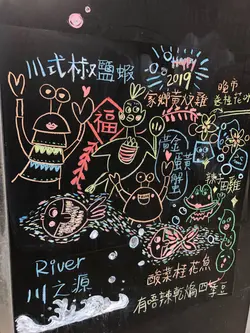 川式椒鹽蝦
2019
家鄉黃炆雞
福
黃金蛋黃蟹
River
川之源
酸菜桂花魚
有唔辣乾煸四季豆